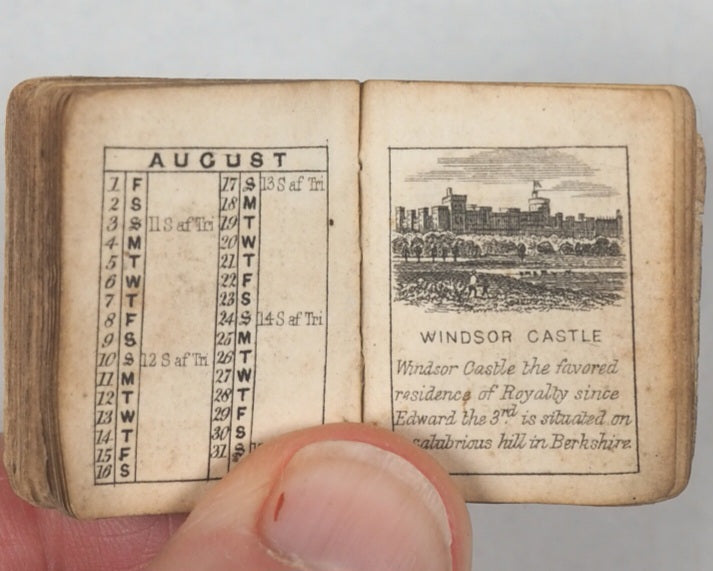 AUGUST
1 F
2 S
3 S 11 S af Tri
4 M
5 T
6 W
7 T
8 F
9 S
10 S 12 S af Tri
11 M
12 T
13 W
14 T
15 F
16 S
17 S 13 S af Tri
18 M
19 T
20 W
21 T
22 F
23 S
24 S 14 S af Tri
25 M
26 T
27 W
28 T
29 F
30 S
31 S
WINDSOR CASTLE
Windsor Castle the favored
residence of Royalty since
Edward the 3rd is situated on
salubrious hill in Berkshire.